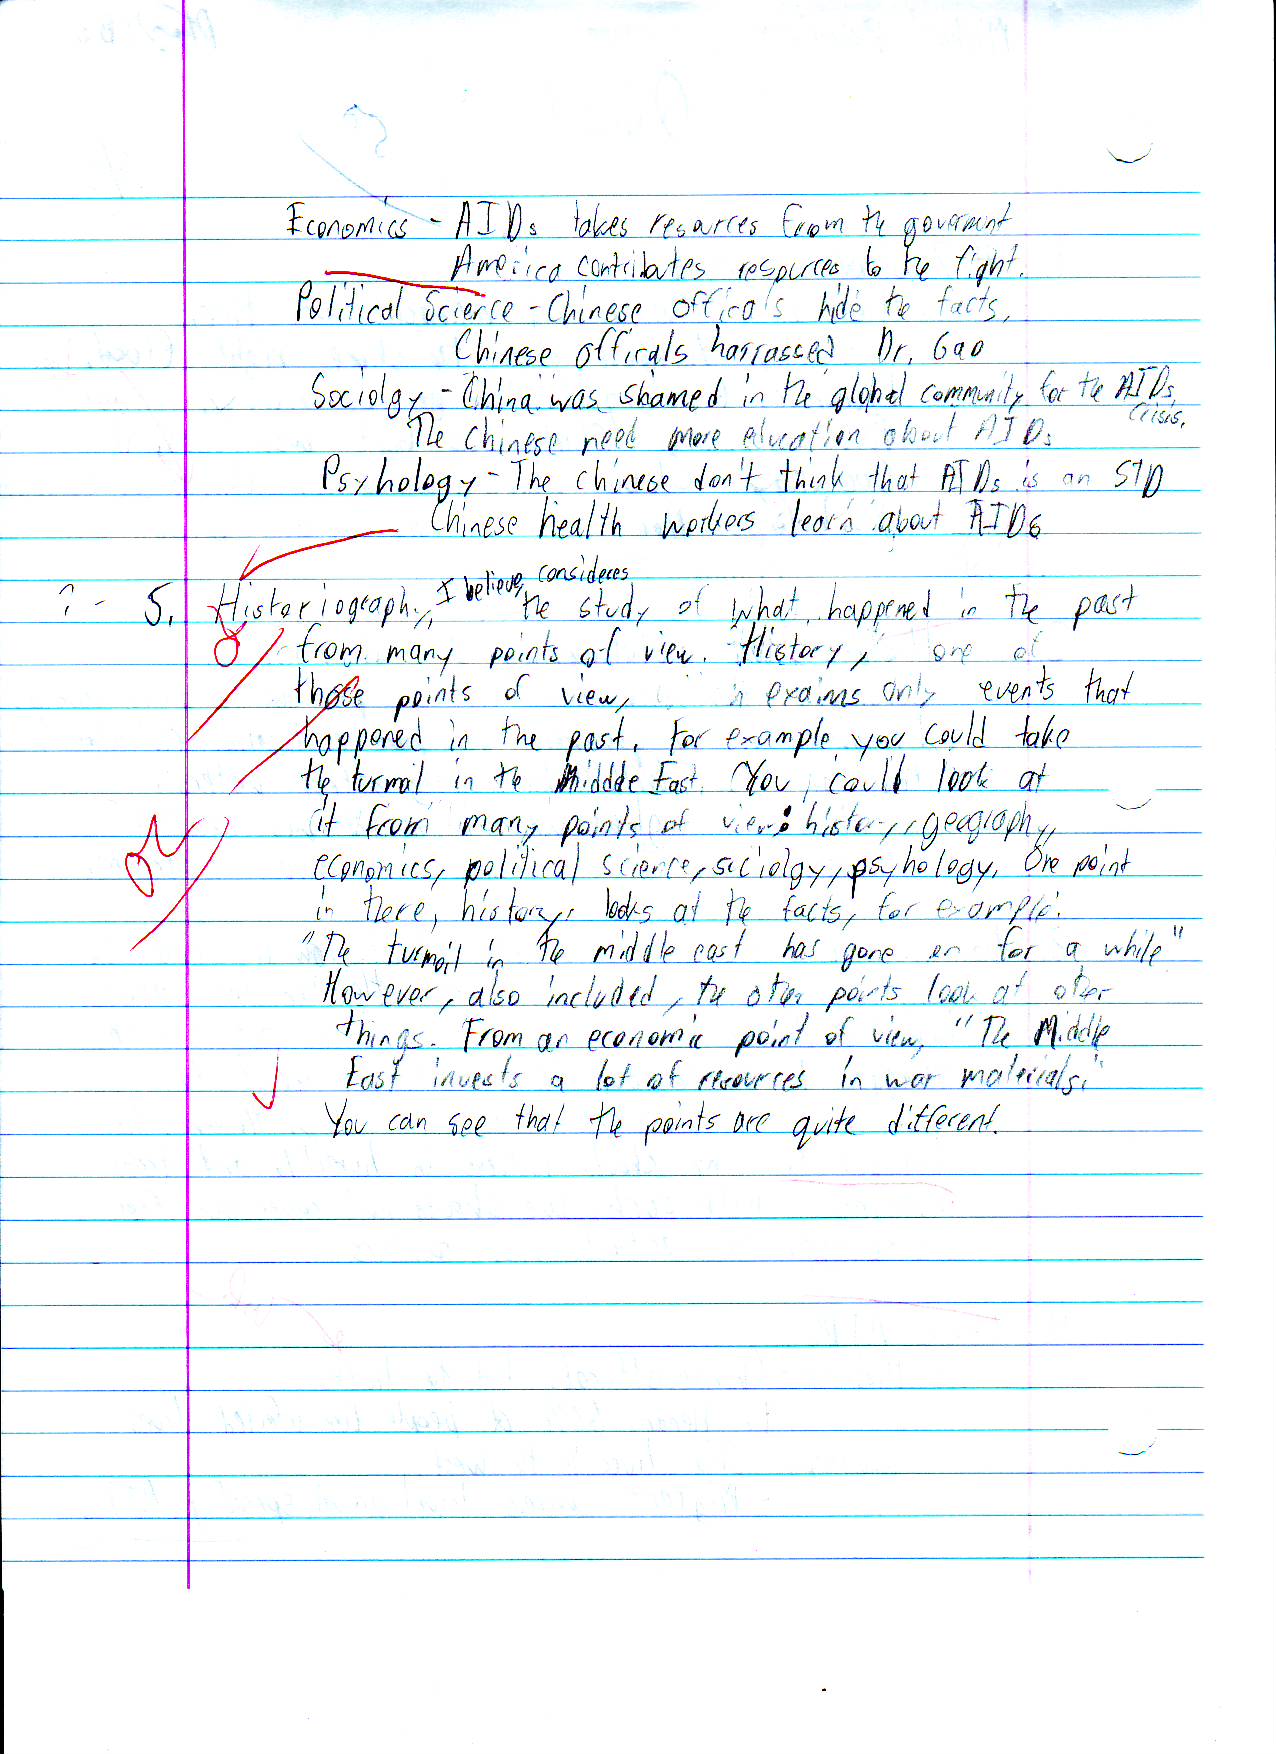 Economics - AIDs takes resources from the goverment
America contributes resources to the fight.
Political Science - Chinese officals hide the facts,
Chinese officals harrassed Dr. Gao
Sociolgy - China was shamed in the global community for the AIDs
crisis.
The Chinese need more education about AIDs
Psyhology - The chinese don't think that AIDs is an STD
Chinese health workers learn about AIDs
I believe, consideres
? - 5. Historiography, the study of what happened in the past
from many points of view. History, one of
those points of view, exains only events that
happened in the past. For example you could take
the turmail in the Middde East. You could look at
it from many points of view: history, geography,
economics, political science, sociolgy, psyhology. One point
in there, history, looks at the facts, for example:
"The turmoil in the middle east has gone on for a while"
However, also included, the other points look at other
things. From an economic point of view, "The Middle
East invests a lot of resources in war materials."
You can see that the points are quite different.